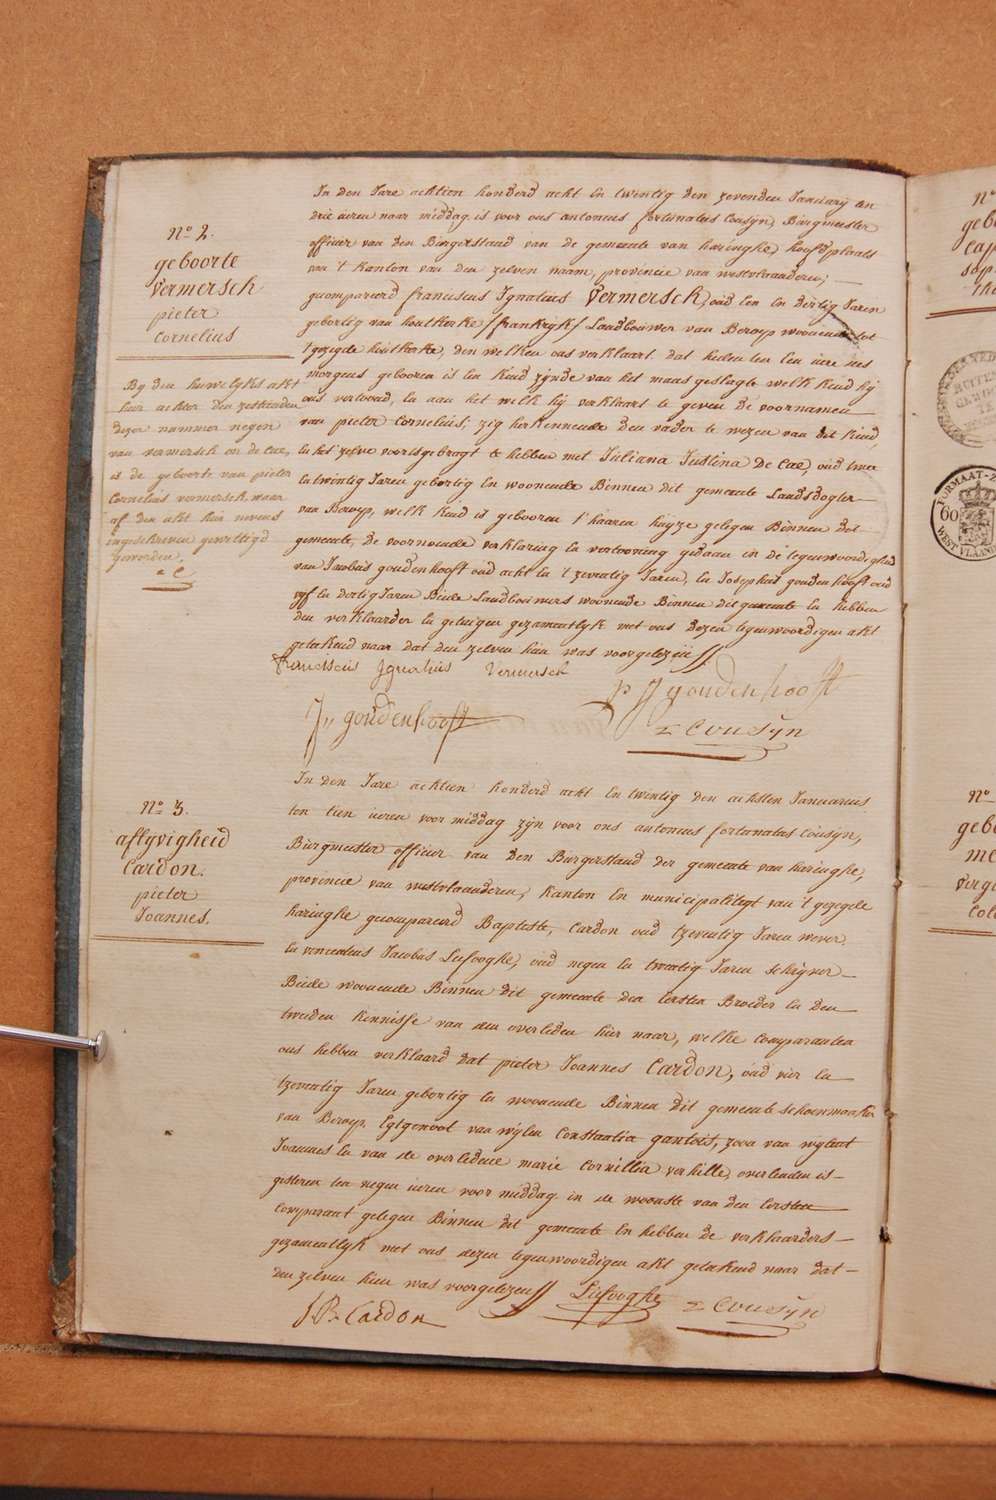 No 2.
geboorte
Vermersch
pieter
Cornelius
By den huwelyks akt
hier achter den zestienden
dezer nummer negen
van vermersch en de Cae,
is de geboorte van pieter
Cornelius vermersch waar
af den akt hier nevens
ingeschreven gewettigd
geworden.
In den Jare achtien honderd acht en twintig den zevenden January en
drie uren naar middag is voor ons antonius fortunatus Cousyn, Burgmeester
officier van den Burgerstand van de gemeente van haringhe, hoofdplaats
van 't kanton van den zelven naam, provincie van westvlaanderen;
gecompareerd franciscus Ignatius Vermersch, oud een en dertig Jaren
gebortig van houtkerke /frankryk/ Landbouwer van Beroep woonende tot
't gezegde houtkerke, den welken ons verklaart dat heden ten een ure des
morgens gebooren is een kind zynde van het mans geslagte welk kind hy
ons vertoond, en aan het welk hy verklaart te geven de voornamen
van pieter Cornelius; zig herkennende den vader te wezen van dit kind,
en het zelve voortsgebragt te hebben met Juliana Justina De Cae, oud twee
en twintig Jaren gebortig en woonende Binnen dit gemeente Landsdogter
van Beroep, welk kind is gebooren t'haaren huyze gelegen Binnen det
gemeente, De voornoemde verklaring en vertooning gedaan in de tegenwoordigheid
van Jacobus goudenhooft oud acht en 't zeventig Jaren, en Josephus goudenhooft oud
vyf en dertig Jaren Beide Landbouwers woonende Binnen dit gemeente en hebben
den verklaarder en getuigen gezamentlyk met ons dezen tegenwoordigen akt
geteekend naar dat den zelven hun was voorgelezen
franciscus Ignatius Vermersch
P J goudenhooft
J goudenhooft
Cousyn
No 3.
aflyvigheid
Cardon.
pieter
Joannes.
In den Jare achtien honderd acht en twintig den achsten Januarius
ten tien uren voor middag zyn voor ons antonius fortunatus Cousyn,
Burgmeester officier van den Burgerstand der gemeente van haringhe,
provincie van westvlaanderen, kanton en municipaliteyt van 't gezegde
haringhe gecompareerd Baptiste, Cardon oud tzeventig Jaren wever
en vincentius Jacobus Lefooghe, oud negen en twintig Jaren schryver
Beide woonende Binnen dit gemeente den eersten Broeder en den
tweeden kennisse van den overleden hier naar, welke comparanten
ons hebben verklaard dat pieter Joannes Cardon, oud vier en
tzeventig Jaren gebortig en woonende Binnen dit gemeente schoenmaaker
van Beroep, Egtgenoot van wylen Constantia gantois, zoon van wylent
Joannes en van de overledene marie Cornillia verhille, overleeden is
gisteren ten negen uren voor middag in de woonste van den Eersten
comparant gelegen Binnen dit gemeente En hebben de verklaarders
gezamentlyk met ons dezen tegenwoordigen akt geteekend naar dat
den zelven hun was voorgelezen
Lefooghe
Cousyn
J B Cardon
No
No
FORMAAT-Z
60
WEST VLAAN